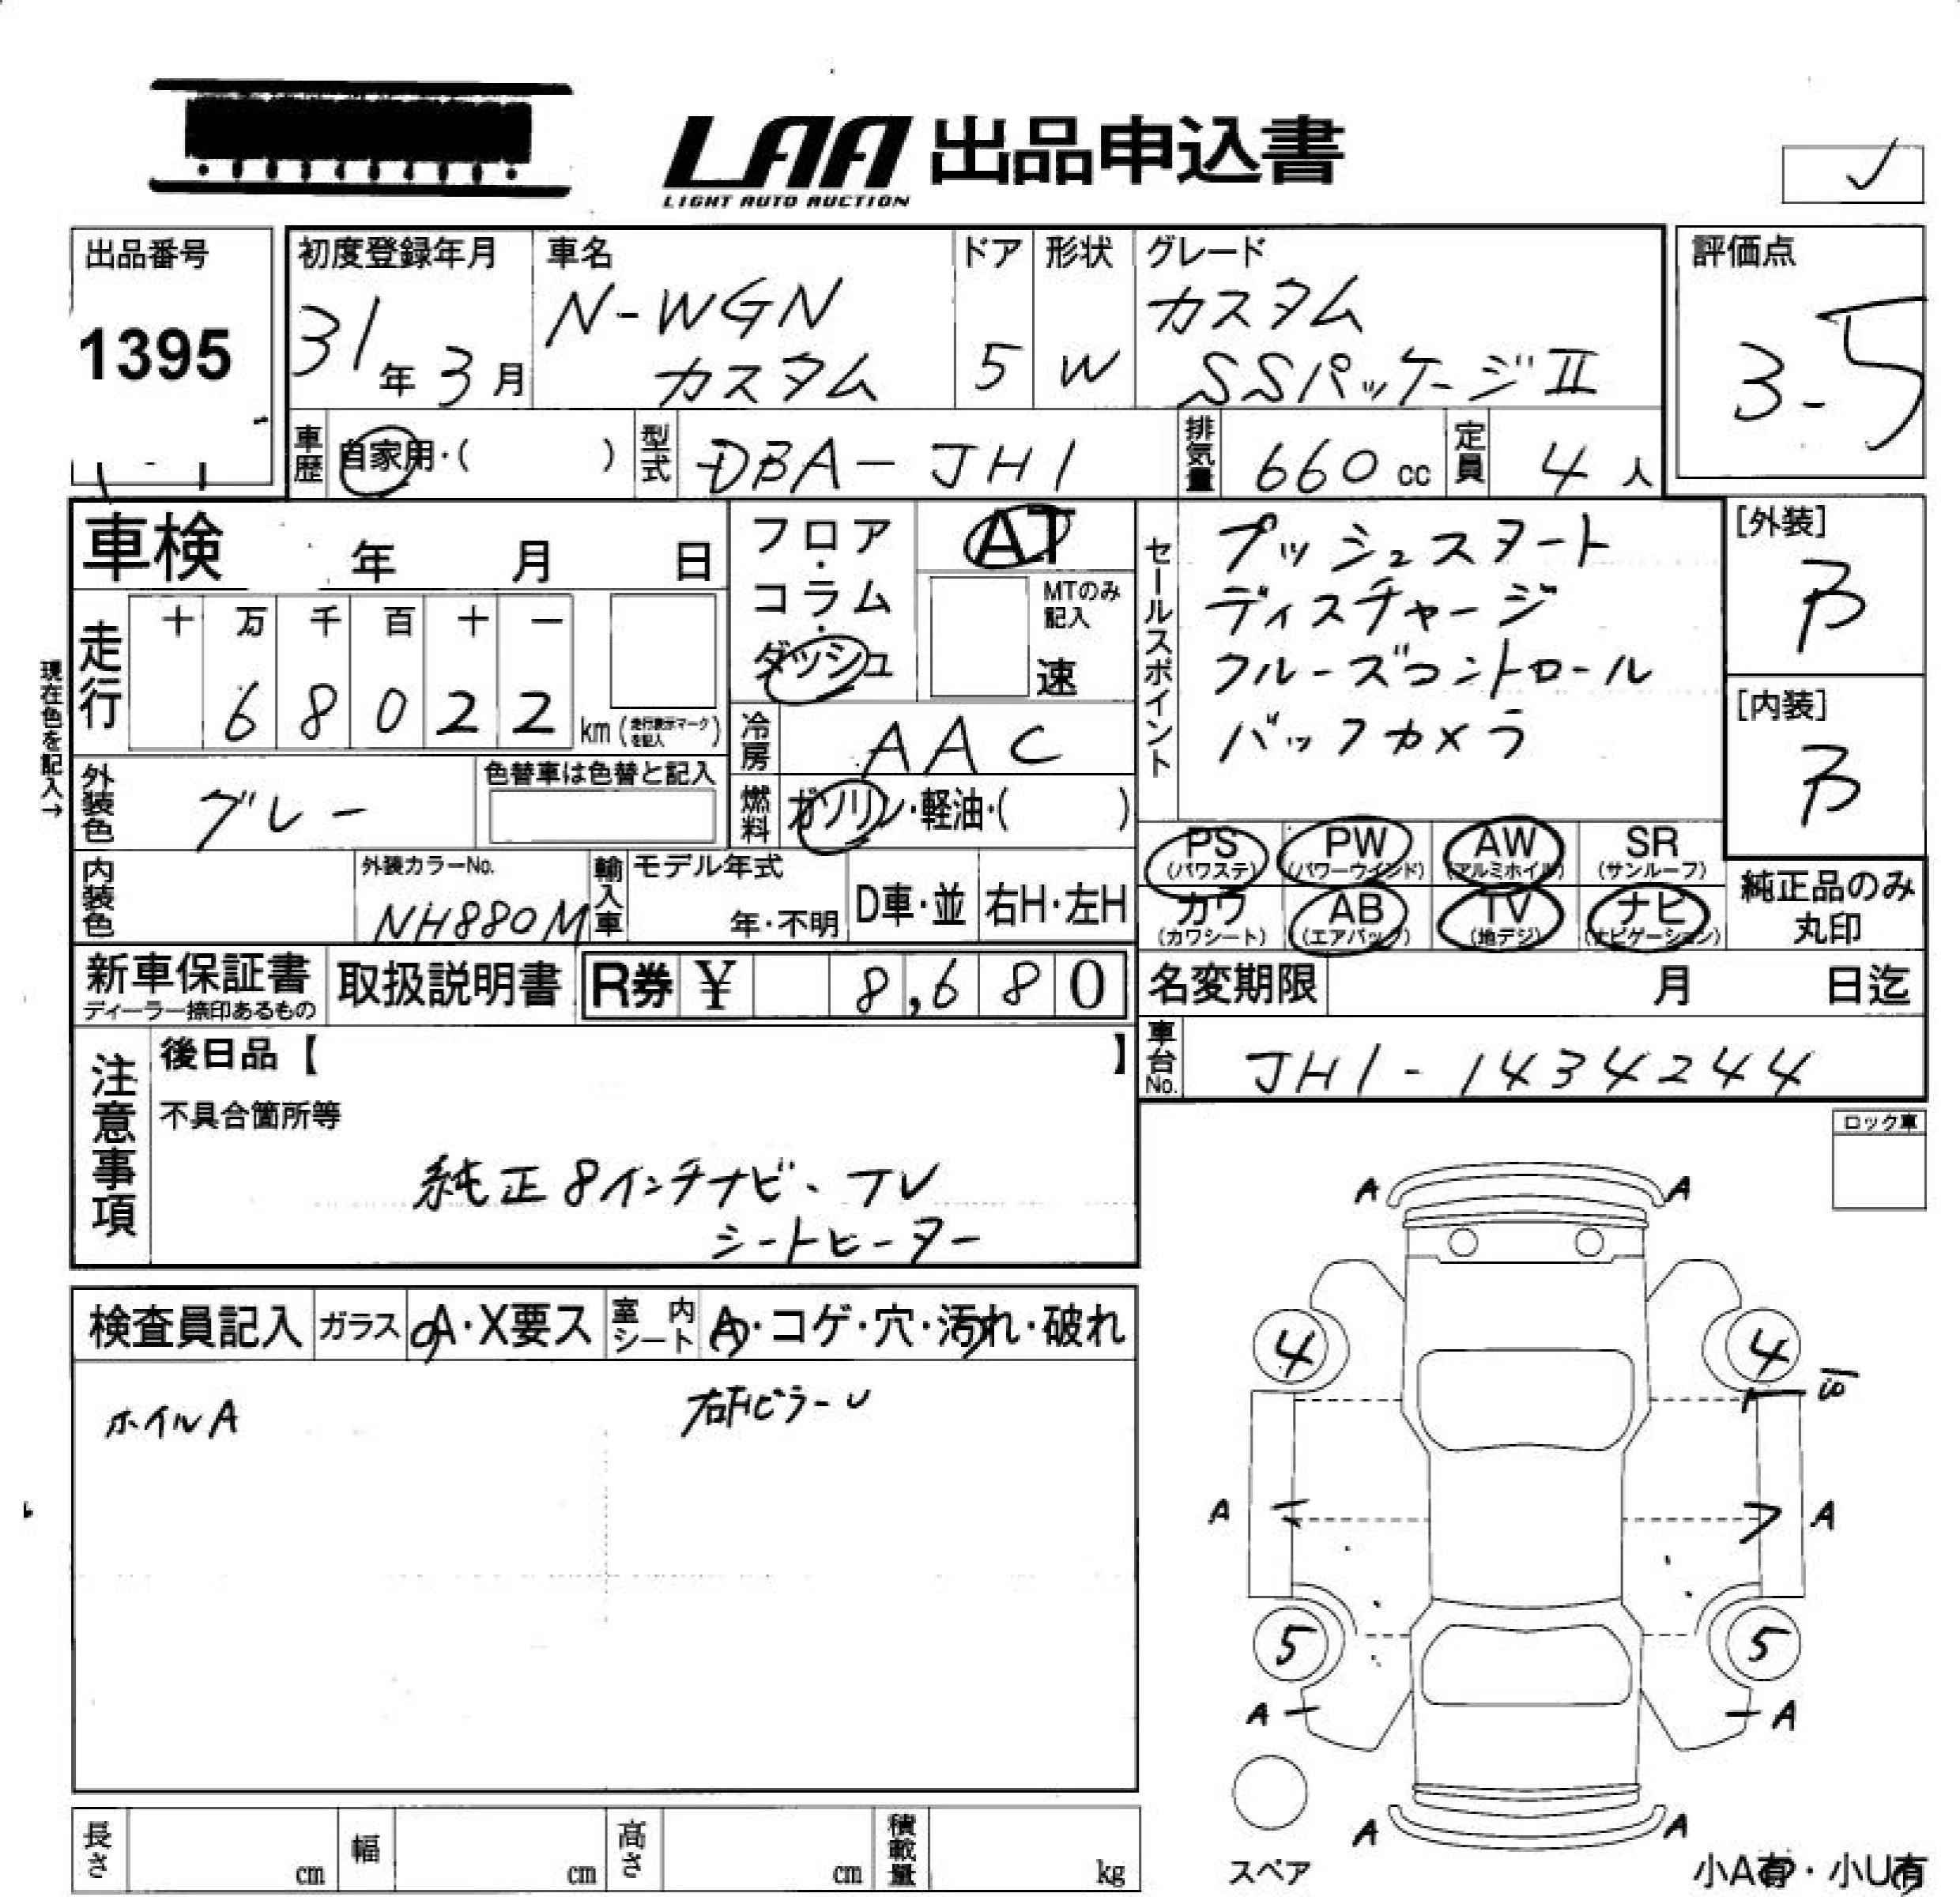 LAA 出品申込書
LIGHT AUTO AUCTION
出品番号
1395
初度登録年月
31年3月
車名
N-WGN
カスタム
ドア
5
形状
W
グレード
カスタム
SSパッケージⅡ
評価点
3.5
車歴
自家用・( )
型式
DBA-JH1
排気量
660cc
定員
4人
車検 年 月 日
フロア・コラム・ダッシュ
AT
MTのみ記入
速
セールスポイント
プッシュスタート
ディスチャージ
クルーズコントロール
バックカメラ
[外装]
B
[内装]
B
現在色を記入→
走行
十 万 千 百 十 一
6 8 0 2 2 km(走行表示マークを記入)
冷房
AAC
外装色
グレー
色替車は色替と記入
燃料
ガソリン・軽油・( )
内装色
外装カラーNo.
NH880M
輸入車
モデル年式
年・不明
D車・並
右H・左H
PS
(パワステ)
PW
(パワーウインド)
AW
(アルミホイル)
SR
(サンルーフ)
カワ
(カワシート)
AB
(エアバック)
TV
(地デジ)
ナビ
(ナビゲーション)
純正品のみ
丸印
新車保証書
ディーラー捺印あるもの
取扱説明書
R券 ¥ 8,680
名変期限 月 日迄
車台No.
JH1-1434244
注意事項
後日品【 】
不具合箇所等
純正8インチナビ、TV
シートヒーター
ロック車
検査員記入
ガラス
A・X要ス
室内シート
A・コゲ・穴・汚れ・破れ
ホイルA
右HピラーU
A A
4 4
A A
5 5
A A
A A
スペア
小A有・小U有
長さ cm
幅 cm
高さ cm
積載量 kg